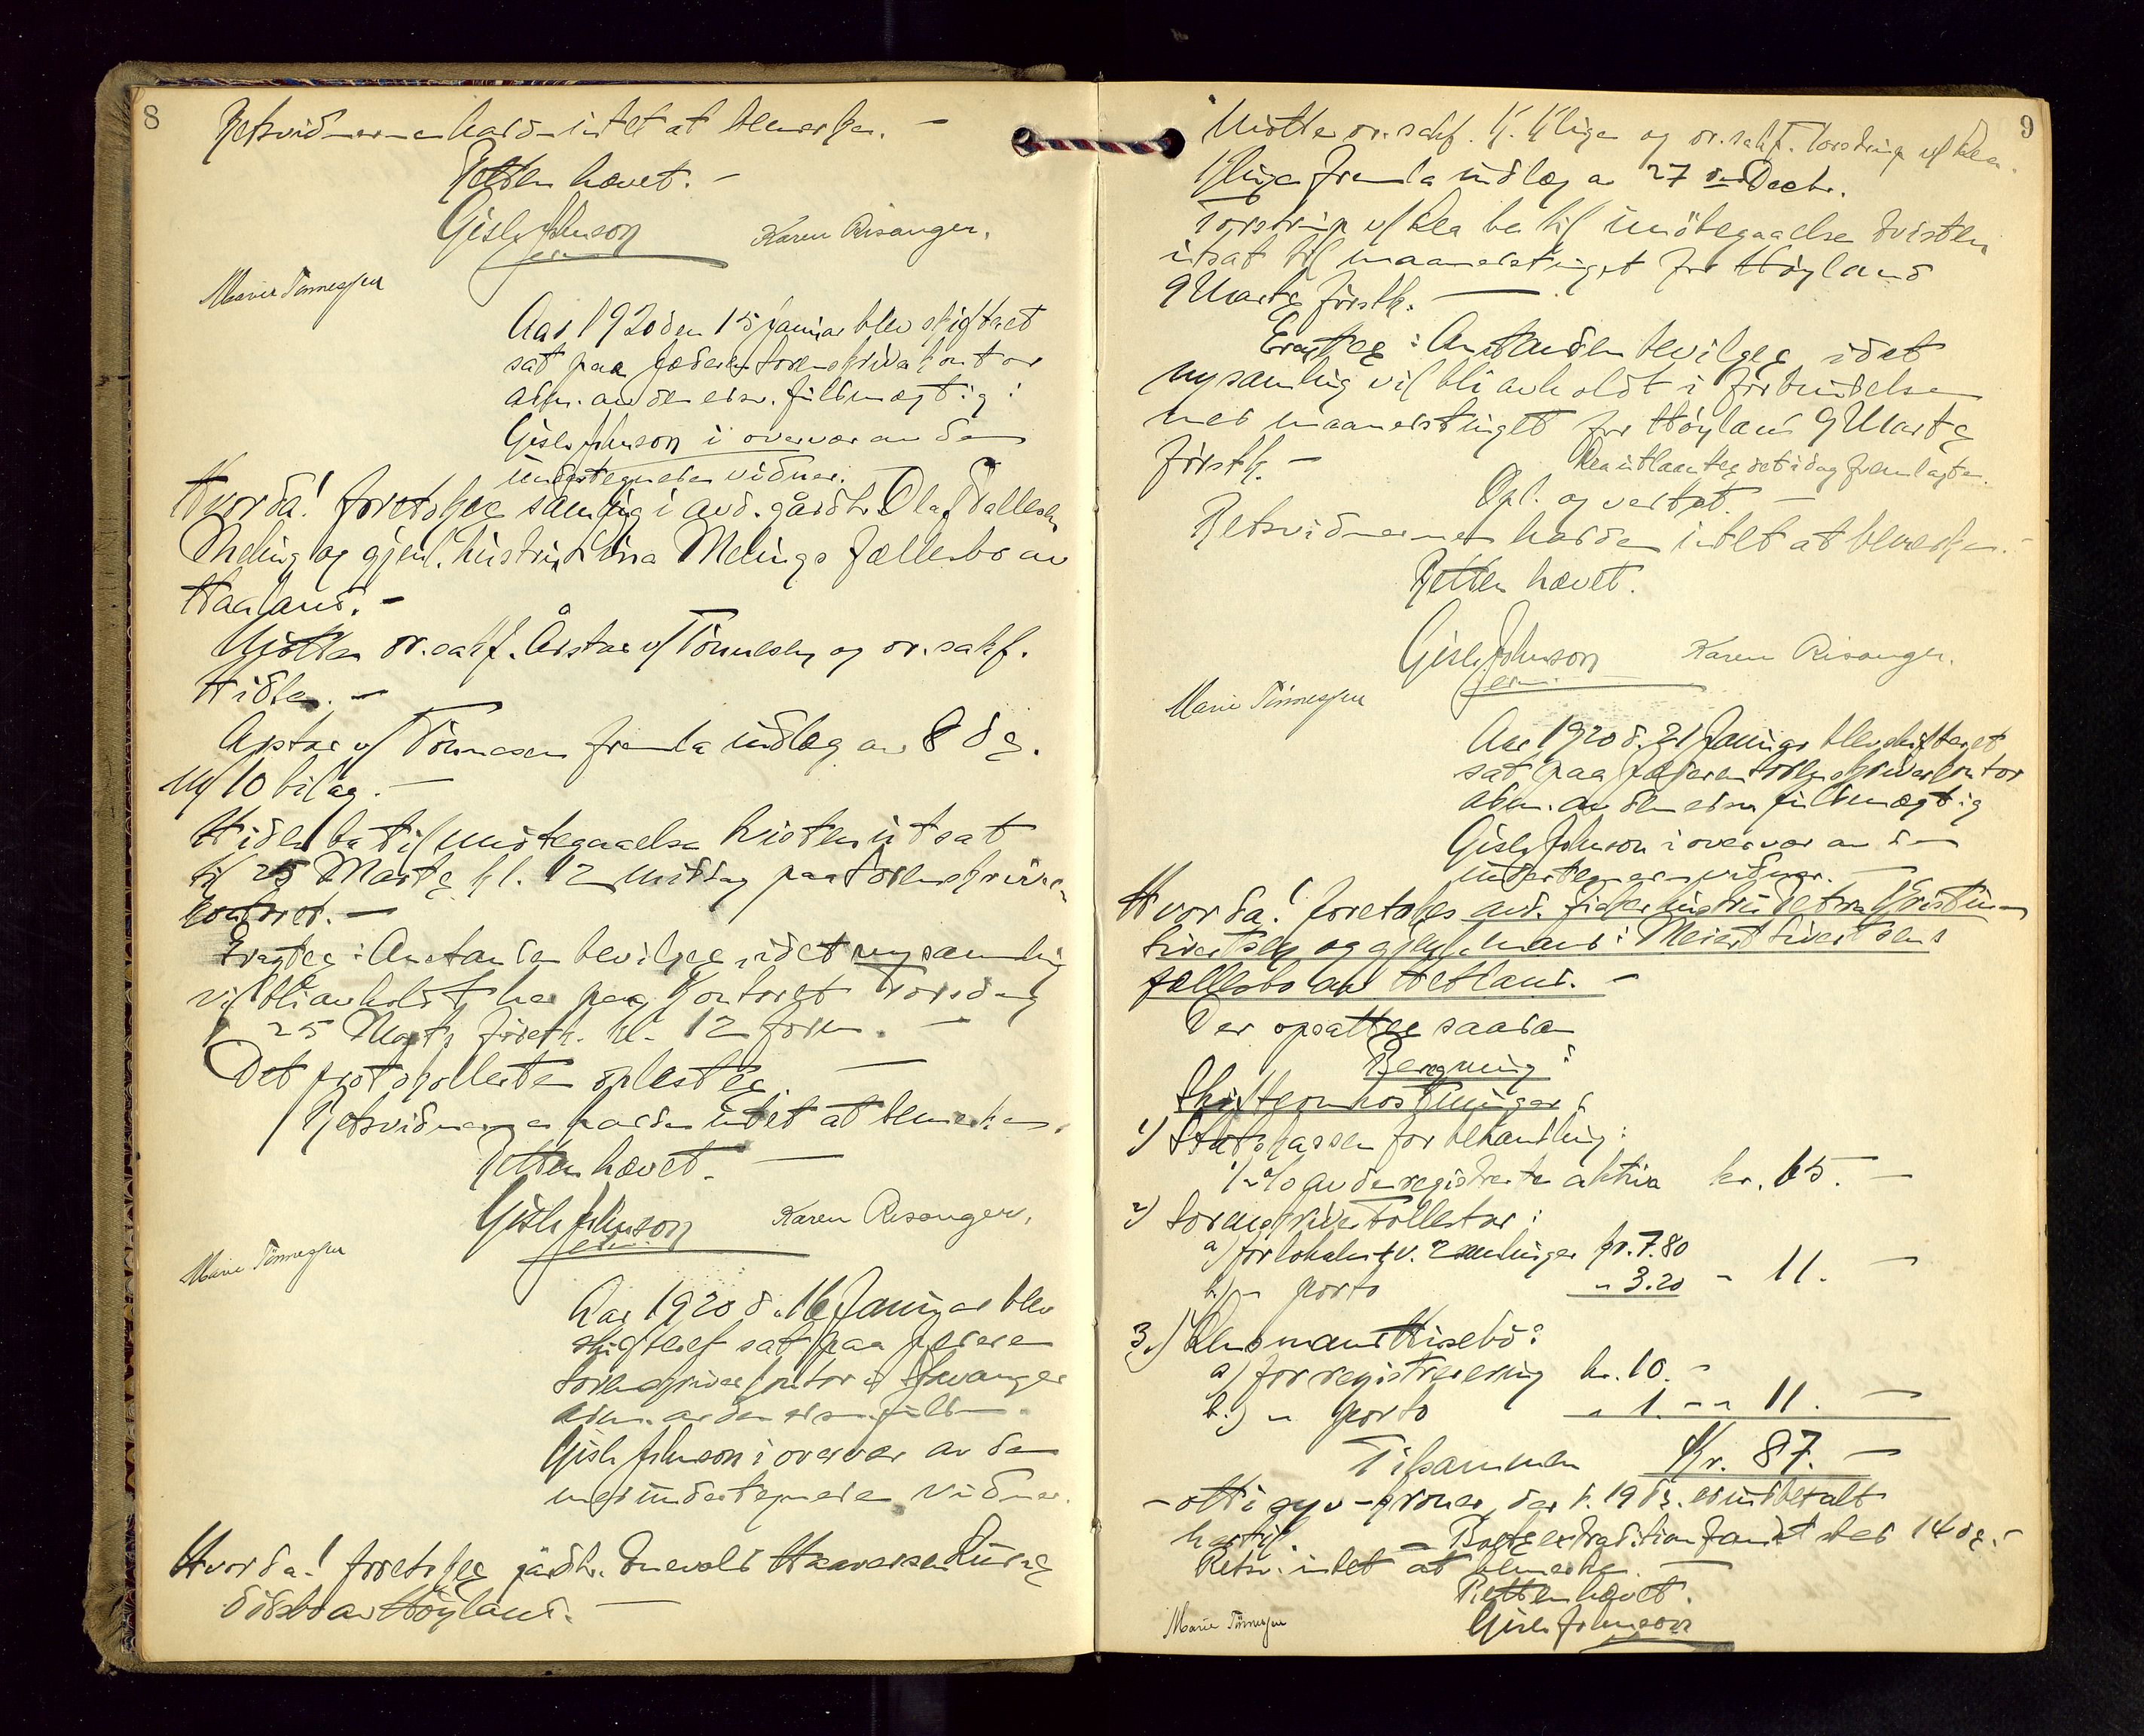 8
Retsvidnerne hadde intet at bemerke. —
Retten hævet. —
Gisle Johnson
Karen Risanger.
Marie Tönnessen
Aar 1920 den 15 januar blev skifteret
sat paa Jæderen sorenskriverkontor
adm. av den edsv. fuldmægtig:
Gisle Johnson i overvær av de
undertegnede vidner.
Hvorda! foretokes samling i avd. gårdbr. Olaf
Meling og gjenl. hustru Meling's fællesbo av
Haaland. —
Mötte or. sakf. Årstad v/ Tönnesen og or. sakf.
Hidle. —
Årstad v/ Tönnesen fremla indlæg av 8 ds.
m/ 10 bilag. —
Hidle ba til imötegaaelse tvisten utsat
til 25 Marts kl. 12 middag paa sorenskriver-
kontoret. —
Eragtes: Anstanden bevilges, idet ny samling
vil bli avholdt her paa kontoret Torsdag
25 Marts förstk. kl. 12 form. —
Det protokollerte oplestes. —
Retsvidnerne hadde intet at bemerke.
Retten hævet. —
Gisle Johnson
Karen Risanger.
Marie Tönnessen
Aar 1920 d. 16 Januar blev
skifteret sat paa Jæderen
sorenskriverkontor i Stavanger
adm. av den edsv. fuldm.
Gisle Johnson i overvær av de
med undertegnede vidner.
Hvorda! foretokes gårdbr. Enevald Haaversen
dödsbo av Höyland. —
9
Mötte or. sakf. K. Kluge og or. sakf. Torstrup v/ Lea.
Kluge fremla indlæg av 27 de Decbr.
Torstrup v/ Lea ba til imötegaaelse tvisten
utsat til maanedstinget for Höyland
9 Marts förstk. —
Eragtes: Anstanden bevilges, idet
ny samling vil bli avholdt i forbindelse
med maanedstinget for Höyland 9 Marts
förstk. —
Lea utlaantes det idag fremlagte.
Opl. og vedtat. —
Retsvidnerne hadde intet at bemerke. —
Retten hævet.
Gisle Johnson
Karen Risanger.
Marie Tönnessen
Aar 1920 d. 21 Januar blev skifteret
sat paa Jæderen sorenskriverkontor
adm. av den edsv. fuldmægtig
Gisle Johnson i overvær av de
undertegnede vidner. —
Hvorda! foretokes avd. fisker hustru Kristine
Sivertsen og gjenl. mand: Meier Sivertsens
fællesbo av Hetland. —
Der opsattes saadan
Beregning:
Skifteomkostninger:
1) Statskassen for behandling:
1/2 % av de registrerte aktiva kr. 65. —
2) Sorenskriver Tollefsen:
a) for lokale t. v. 2 samlinger kr. 7.80
b.) " porto " 3.20 - 11. —
3.) Lensmand Husebö:
a) for registrering kr. 10. -
b.) " porto " 1. - " 11. —
Tilsammen Kr. 87. —
— otti syv — kroner, der d. 19 ds. er indbetalt
hertil. — Boets extradition fandt sted 14 ds. —
Retsv. intet at bemerke. —
Retten hævet.
Gisle Johnson
Marie Tönnessen